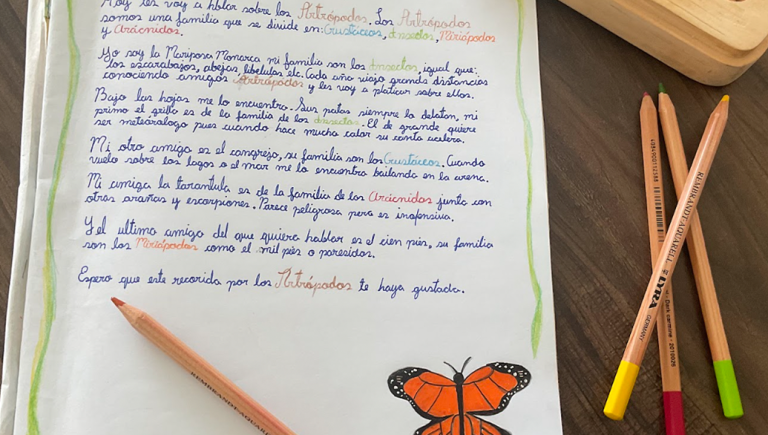 Hoy les voy a hablar sobre los Artrópodos. Los Artrópodos
somos una familia que se divide en: Crustáceos, Insectos, Miriápodos
y Arácnidos.
Yo soy la Mariposa Monarca mi familia son los Insectos, igual que:
los escarabajos, abejas, libelulas, etc. Cada año viajo grandes distancias
conociendo amigos Artrópodos y les voy a platicar sobre ellos.
Bajo las hojas me lo encuentro. Sus patas siempre lo delatan, mi
primo el grillo es de la familia de los Insectos. El de grande quiere
ser meteóralogo pues cuando hace mucho calor su canto acelera.
Mi otro amigo es el cangrejo, su familia son los Crustáceos. Cuando
vuelo sobre los lagos o al mar me lo encuentro bailando en la arena.
Mi amiga la tarantula es de la familia de los Arácnidos junto con
otras arañas y escorpiones. Parece peligrosa pero es inofensiva.
Y el ultimo amigo del que quiero hablar es el cien piés, su familia
son los Miriápodos como el mil piés o parecidos.
Espero que este recorido por los Artrópodos te haya gustado.
REMBRANDT AQUARELL
REMBRANDT AQUARELL LYRA GERMANY
Dark carmine 2010025